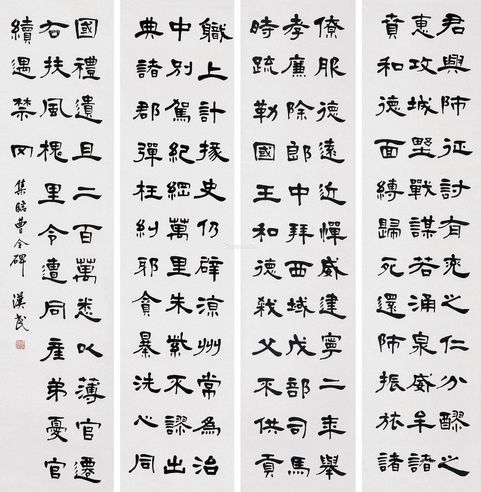 君興師征討有兗之仁分醪之
惠攻城野戰謀若涌泉威牟諸
賁和德面縛歸死還師振旅諸
僚服德遠近憚威建寧二年舉
孝廉除郎中拜西域戊部司馬
時疏勒國王和德弒父不供貢
軄上計掾史仍辟涼州常為治
中別駕紀綱萬里朱紫不謬出
典諸郡彈枉糾邪貪暴洗心同
國禮遺且二百萬悉以薄官遷
右扶風槐里令遭同產弟憂官
續遇禁网
集臨曹全碑 漢民